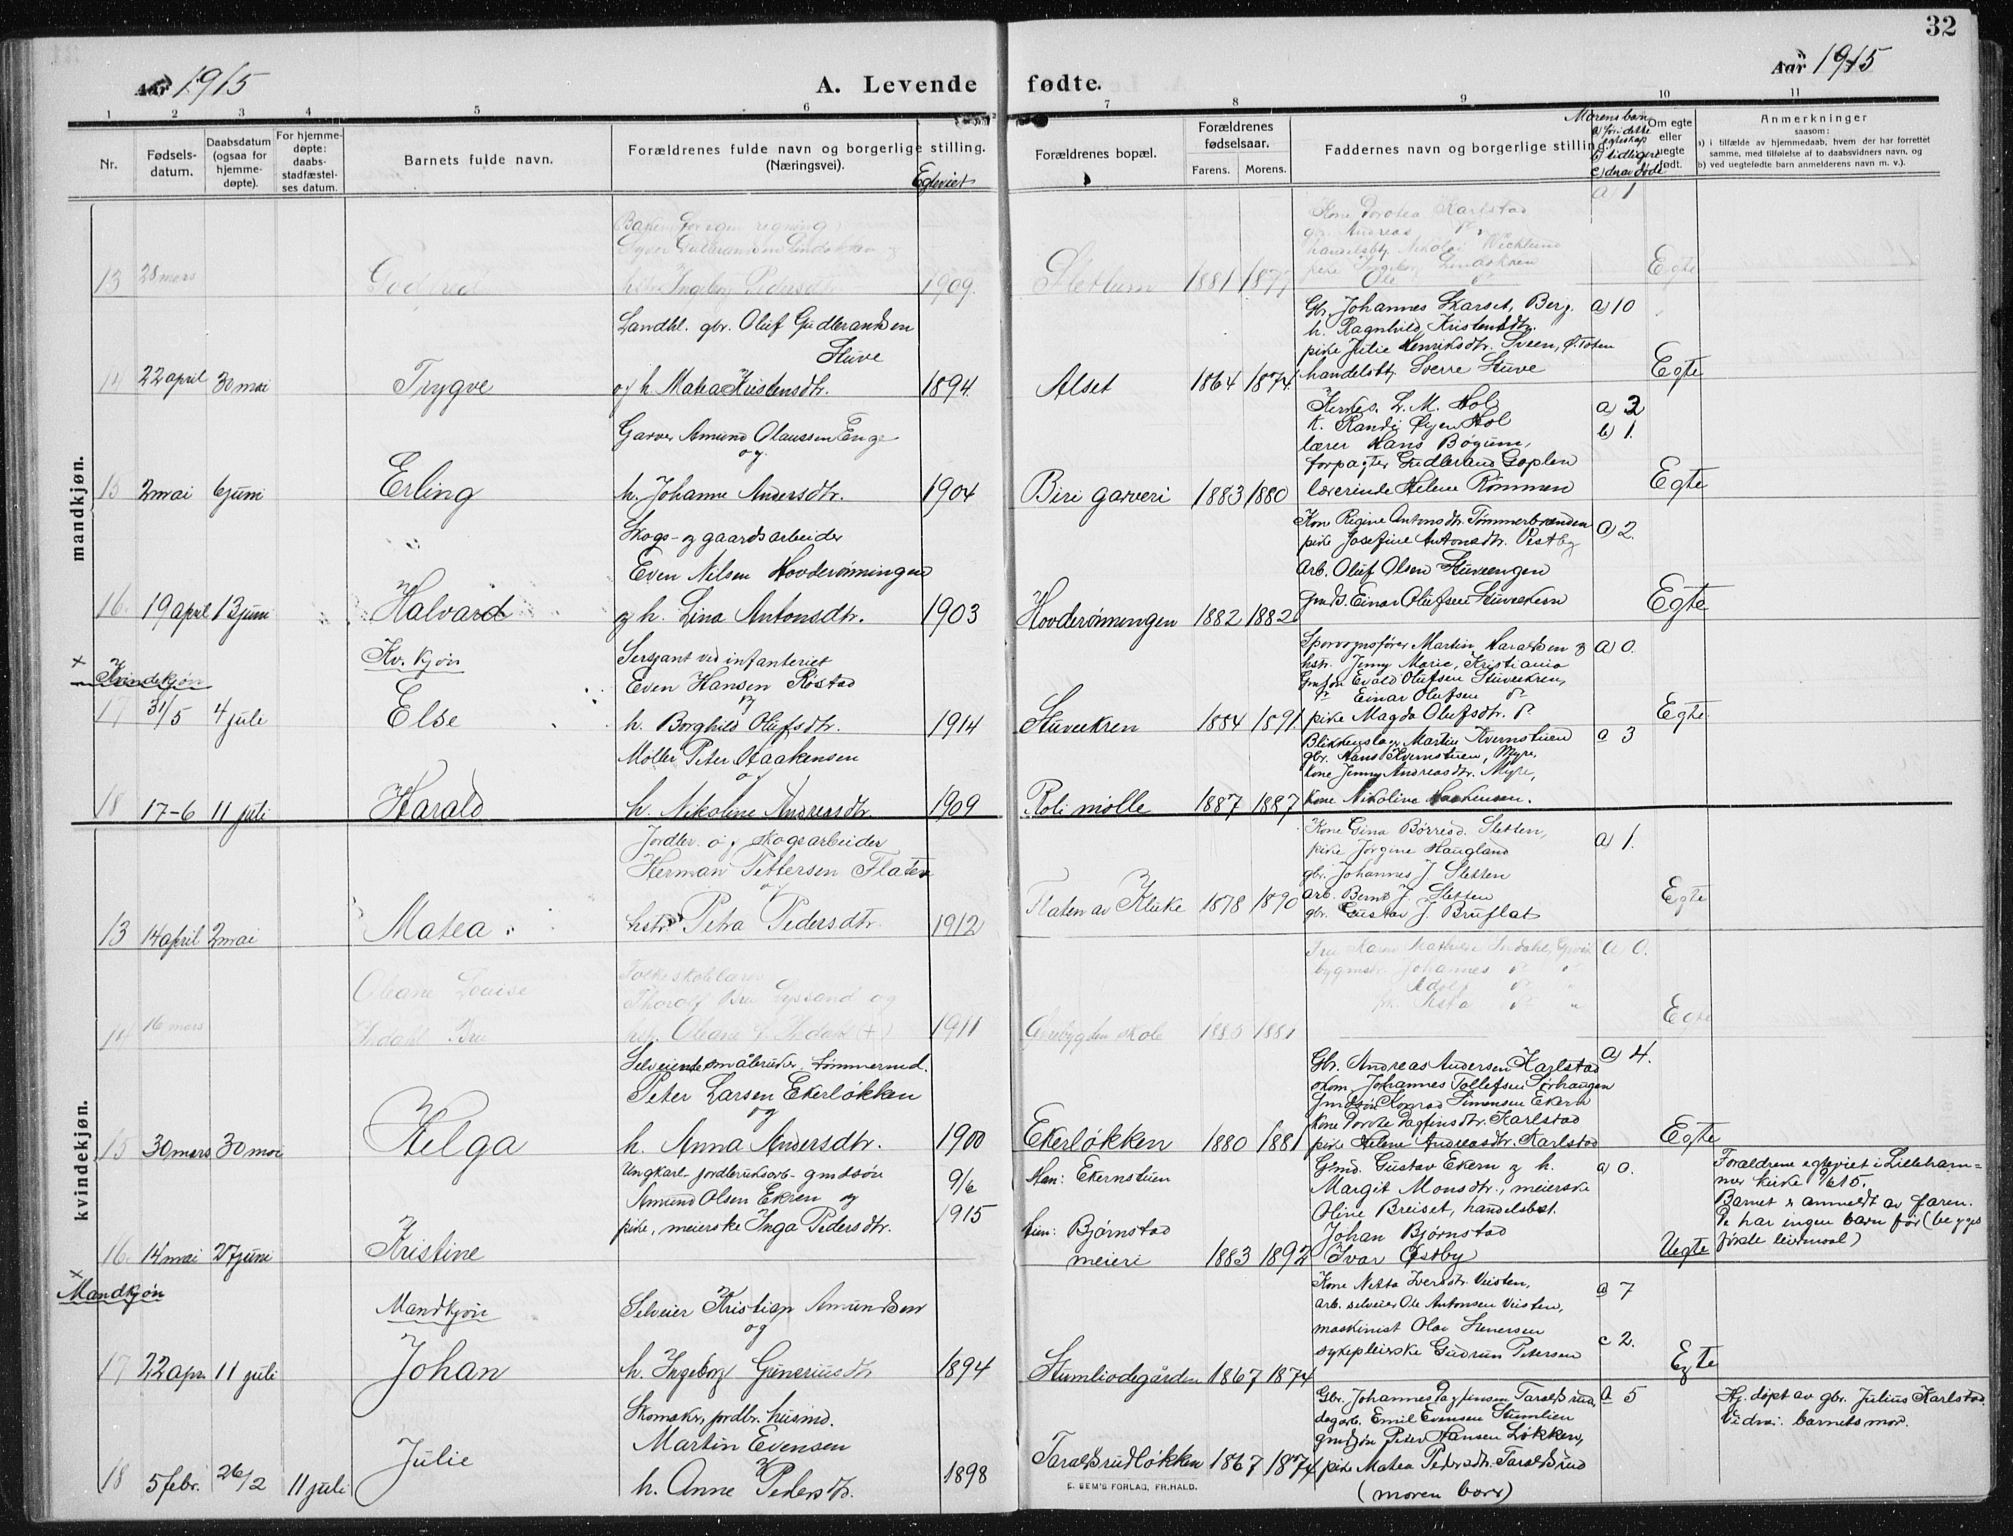 32
Aar 1915
A. Levende fødte.
Aar 1915
1 2 3 4 5 6 7 8 9 10 11
Nr.
Fødsels-
datum.
Daabsdatum
(ogsaa for
hjemme-
døpte).
For hjemme-
døpte:
daabs-
stadfæstel-
ses datum.
Barnets fulde navn.
Forældrenes fulde navn og borgerlige stilling.
(Næringsvei).
Egteviet
Forældrenes bopæl.
Forældrenes
fødselsaar.
Farens. Morens.
Faddernes navn og borgerlige stilling.
Morens barn
a) før i dette
egteskap
b) tidligere
c) derav døde
Om egte
eller
uegte
født.
Anmerkninger
saasom:
a) i tilfælde av hjemmedaab, hvem der har forrettet
samme, med tilføielse af to daabsvidners navn, og
b) ved uegtefødte barn anmelderens navn m. v.).
mandkjøn.
13 28 mars
Godfred
hstr. Ingeborg Pedersdtr. 1909.
Slettum 1881 1877
Kone Dorotea Karlstad
gr. Andreas
handelsbtj. Nikolai Wicklund
pike Ingeborg Lindekren
Ole
a) 1
Egte
14 22 april 30 mai
Trygve
Landhl. gbr. Oluf Gudbrandsen
Stuve
og h. Matea Kristensdtr. 1894.
Alset 1864 1874
Gbr. Johannes Skarset, Berg.
h. Ragnhild Kristensdtr.
pike Julie Henriksdtr. Sveen, Ø. Toten
handelsbtj. Sverre Stuve
a) 10
Egte
15 2 mai 6 juni
Erling
Garver Amund Olaussen Enge
og
h. Johanne Andersdtr. 1904
Biri garveri 1883 1880
Kirkes. L. M. Hol
k. Randi Øyen Hol
lærer Hans Bøgum,
forpagter Gudbrand Goplen
lærerinde Helene Rømmen
a) 3
b) 1.
Egte
16. 19 april 13 juni
Halvard
Skogs- og gaardsarbeider
Even Nilsen Hovderønningen
og h. Lina Antonsdtr. 1903
Hovderønningen 1882 1882
Kone Regine Antonsdtr. Tømmerbrænden
pike Josefine Antonsdtr. Vestby
Arb. Oluf Olsen Stuveengen
Gmds. Einar Olufsen Stuveekren
a) 2.
Egte
x
Kvindekjøn
17 31/5 4 juli
Kv. kjøn
Else
Sersjant ved infanteriet
Even Hansen Røstad
og
h. Borghild Olufsdtr. 1914
Stuveekren 1884 1891
Sporvognsfører Martin Haraldsen og
hstr. Jenny Marie, Kristiania
Gmdsøn Evald Olufsen Stuveekren,
Einar Olufsen
pike Magda Olufsdtr.
a) 0.
Egte
18 17-6 11 juli
Harald
Møller Peter Haakensen
og
h. Nikoline Andreasdtr. 1909
Roli mølle 1887 1887
Blikkenslager Martin Kvernstuen
gbr. Hans Kvernstuen, Myre,
kone Jenny Andreasdtr. Myre,
kone Nikoline Haakensen.
a 3
kvindekjøn.
13 14 april 2 mai
Matea
Jordbr. og skogsarbeider
Herman Pettersen Flaten
og
hstr. Petra Pedersdtr. 1912
Flaten av Kluke 1878 1890
Kone Gina Børresd. Sletten,
pike Jørgine Haugland
gbr. Johannes J. Sletten
arb. Bernt J. Sletten
gbr. Gustav J. Bruflat
a) 1.
Egte
14 16 mars
Oleane Louise
Indahl Bru
Folkeskolelærer
Thorolf Bru Lyssand og
hstr. Oleane f. Indahl (+) 1911
skole 1885 1881
Fru Karen Mathilde Indahl, Gjøvik
bygmstr. Johannes
Adolf
Asta
a 0.
Egte
15 30 mars 30 mai
Helga
Selveiende småbruker. Tømmermd.
Peter Larsen Ekerløkken
og
h. Anna Andersdtr. 1900
Ekerløkken 1880 1881
Gbr. Andreas Andersen Karlstad
skom. Johannes Tollefsen Sørhaugen
Gmdsøn Konrad Simensen Ekern
Kone Dorte Dagfinsdtr. Karlstad
pike Helene Andreasdtr. Karlstad
a) 4.
Egte
16. 14 mai 27 juni
Kristine
Ungkarl jordbruksarb. gmdsøn
Amund Olsen Ekren og
pike, meierske Inga Pedersdtr.
9/6
1915
Han: Ekernstuen
Hun: Bjørnstad
meieri 1883 1892
Gmd. Gustav Ekern og h.
Margit Monsdtr., meierske
Oline Breiset, handelsbest.
Johan Bjørnstad
Ivar Østby
a) 0.
Uegte
Forældrene egteviet i Lilleham=
mer kirke 9/6 15.
Barnet er anmeldt av faren.
De har ingen barn før (begges
første leiermaal)
x
Mandkjøn
17 22 apr. 11 juli
Mandkjøn
Johan
Selveier Kristian Amundsen
og
h. Ingeborg Guneriusdtr 1894
Stumliodegården 1867 1874
Kone Netta Iversdtr. Veisten,
arb. selveier Ole Antonsen Veisten,
maskinist Olav Stenersen
sykepleierske Gudrun Petersen
a 7
c 2.
Egte
18 5 febr. 26/2 11 juli
Julie
Skomaker, jordbr. husmd.
Martin Evensen
og
h. Anne Pedersdtr. 1898
Taralsrudløkken 1867 1874
Gbr. Johannes Dagfinsen Taralsrud,
dagarb. Emil Evensen Stumlien
gmdsøn Peter Hansen Løkken,
pike Matea Pedersdtr. Taralsrud
(moren barer)
a 5
Hj. døpt av gbr. Julius Karlstad.
Vidne: barnets mor.
E. SEM'S FORLAG, FR.HALD.